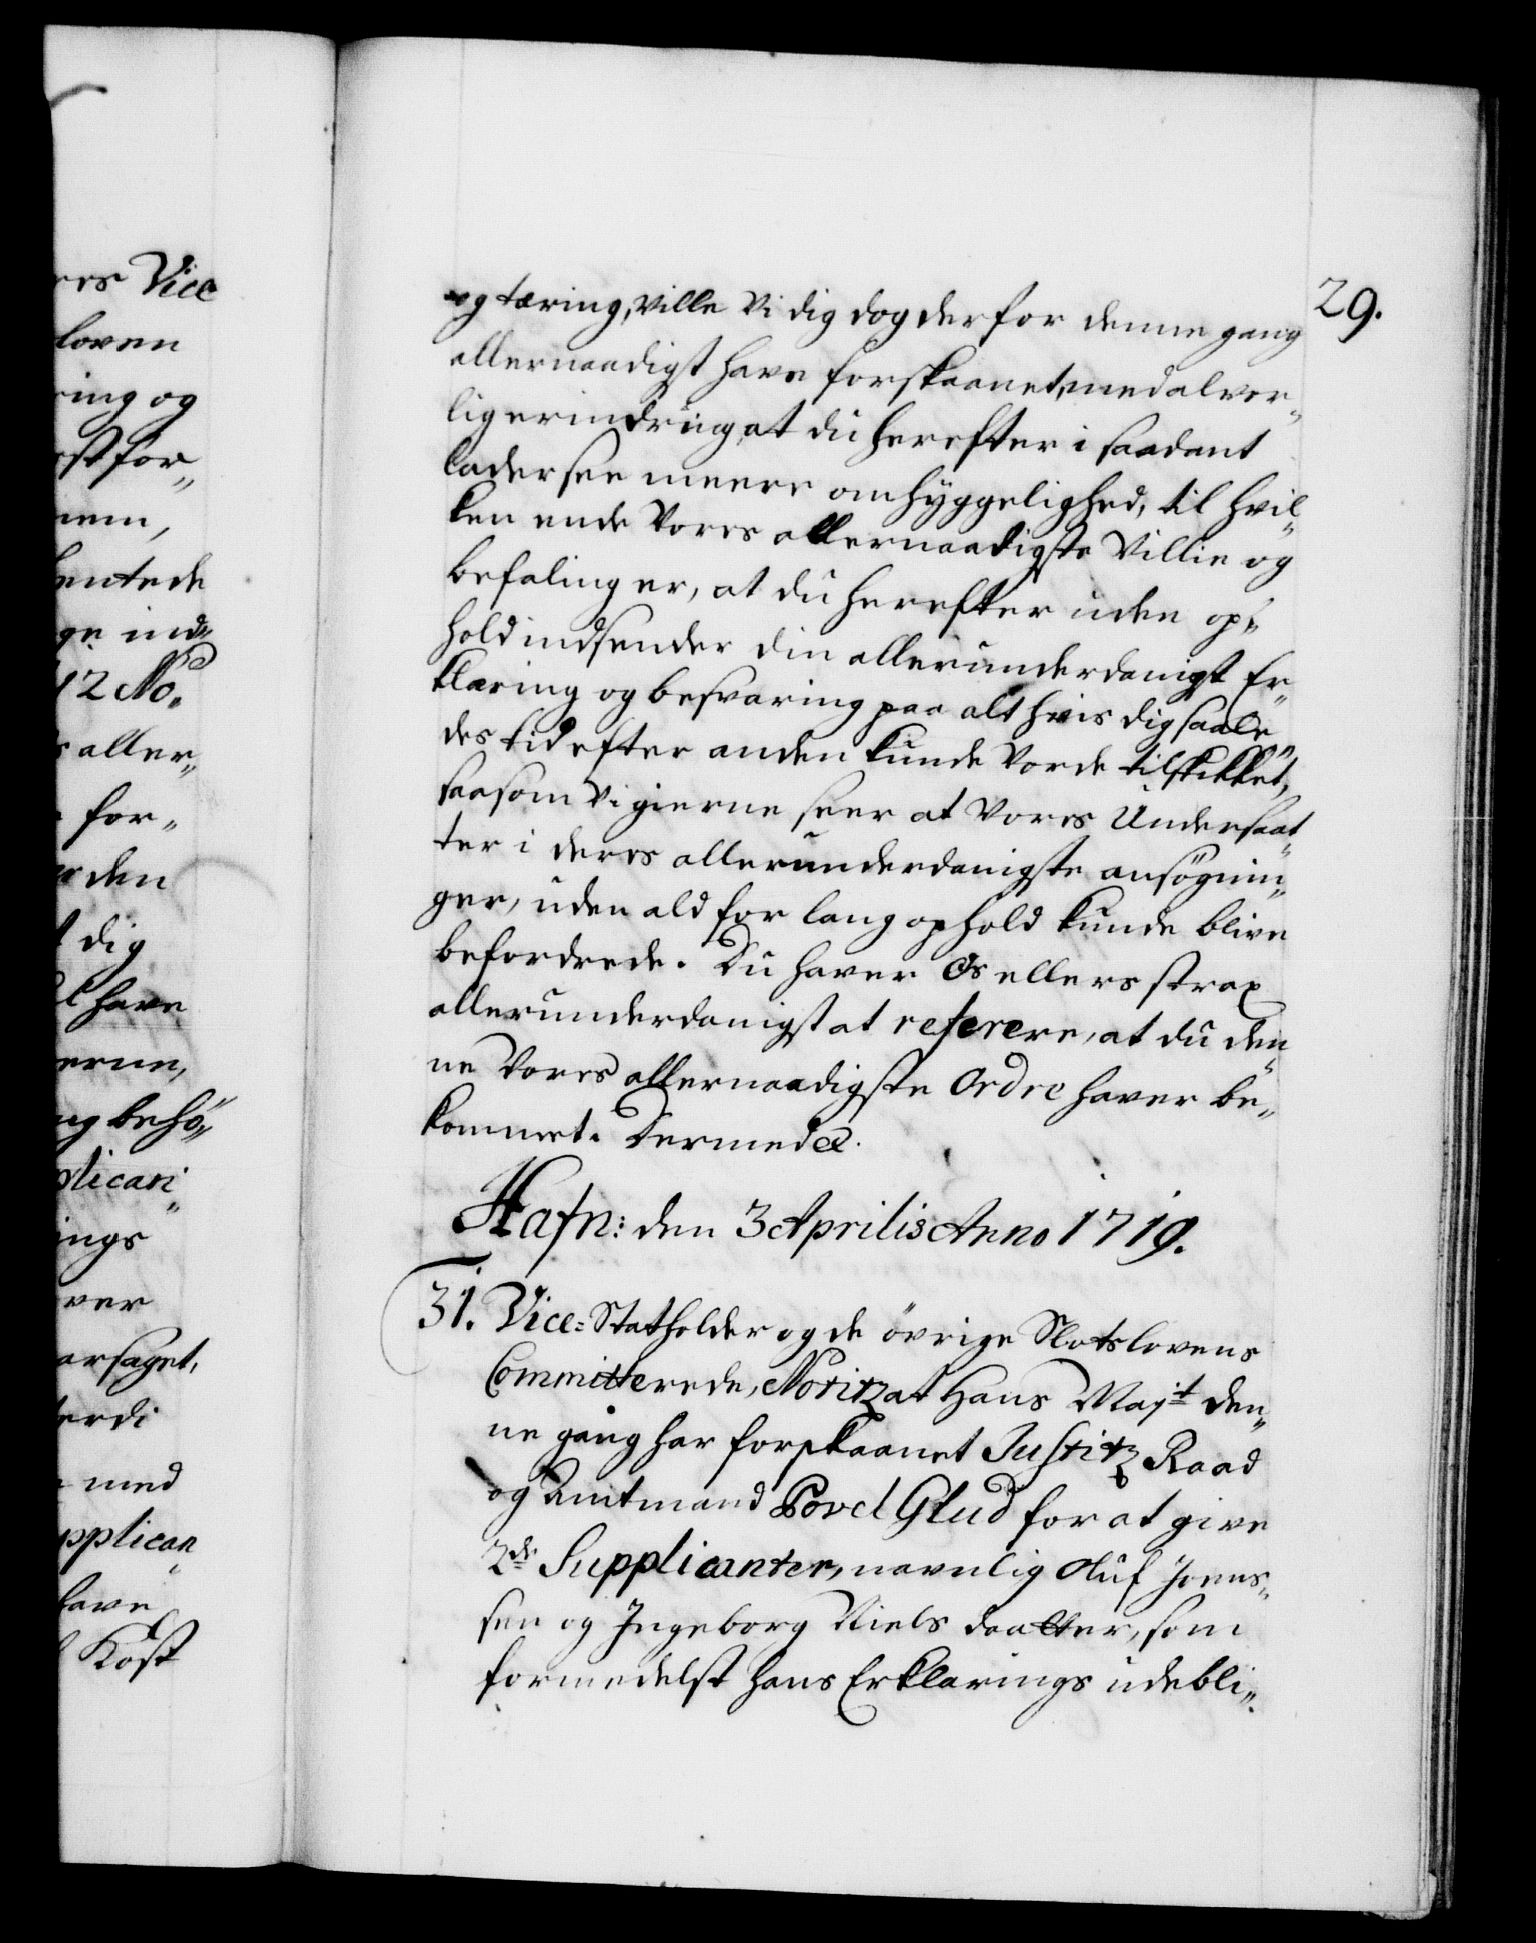 res Vice
loven
ring og
st for„
nem,
hentede
ge ind„
12 No.
s aller„
for„
er den
t dig
l have
erne,
ng behö„
plicani„
ings
ver
arsaget,
ferdi
med
pplican„
have
Kost
29.
og tæring, ville Vi dig dog derfor denne gang
allernaadigst have forskaanet, med alvor„
lig erindring, at du herefter i saadant
lader see meere omhyggelighed, til hvil„
ken ende Vores allernaadigste Villie og
befaling er, at du herefter uden op„
hold indsender din allerunderdanigst Er„
klæring og besvaring paa alt hvis dig saale„
des tid efter anden kunde vorde tilskikket,
saasom Vi gierne seer at Vores Undersaat„
ter i deres allerunderdanigste ansögnin„
ger, uden ald for lang ophold kunde blive
befordrede. Du haver Os ellers strax
allerunderdanigst at referere, at du den„
ne Vores allernaadigste Ordre haver be„
kommet. Dermed &.
Hafn: den 3 Aprilis Anno 1719.
31. Vice-Statholder og de övrige Slotslovens
Committerede, Notitz at Hans Majt den„
ne gang har forskaanet Justitz Raad
og Amtmand Povel Glud for at give
2de Supplicanter, navnlig Oluf Joens„
sen og Ingeborg Niels daatter, som
formedelst hans Erklærings udebli„